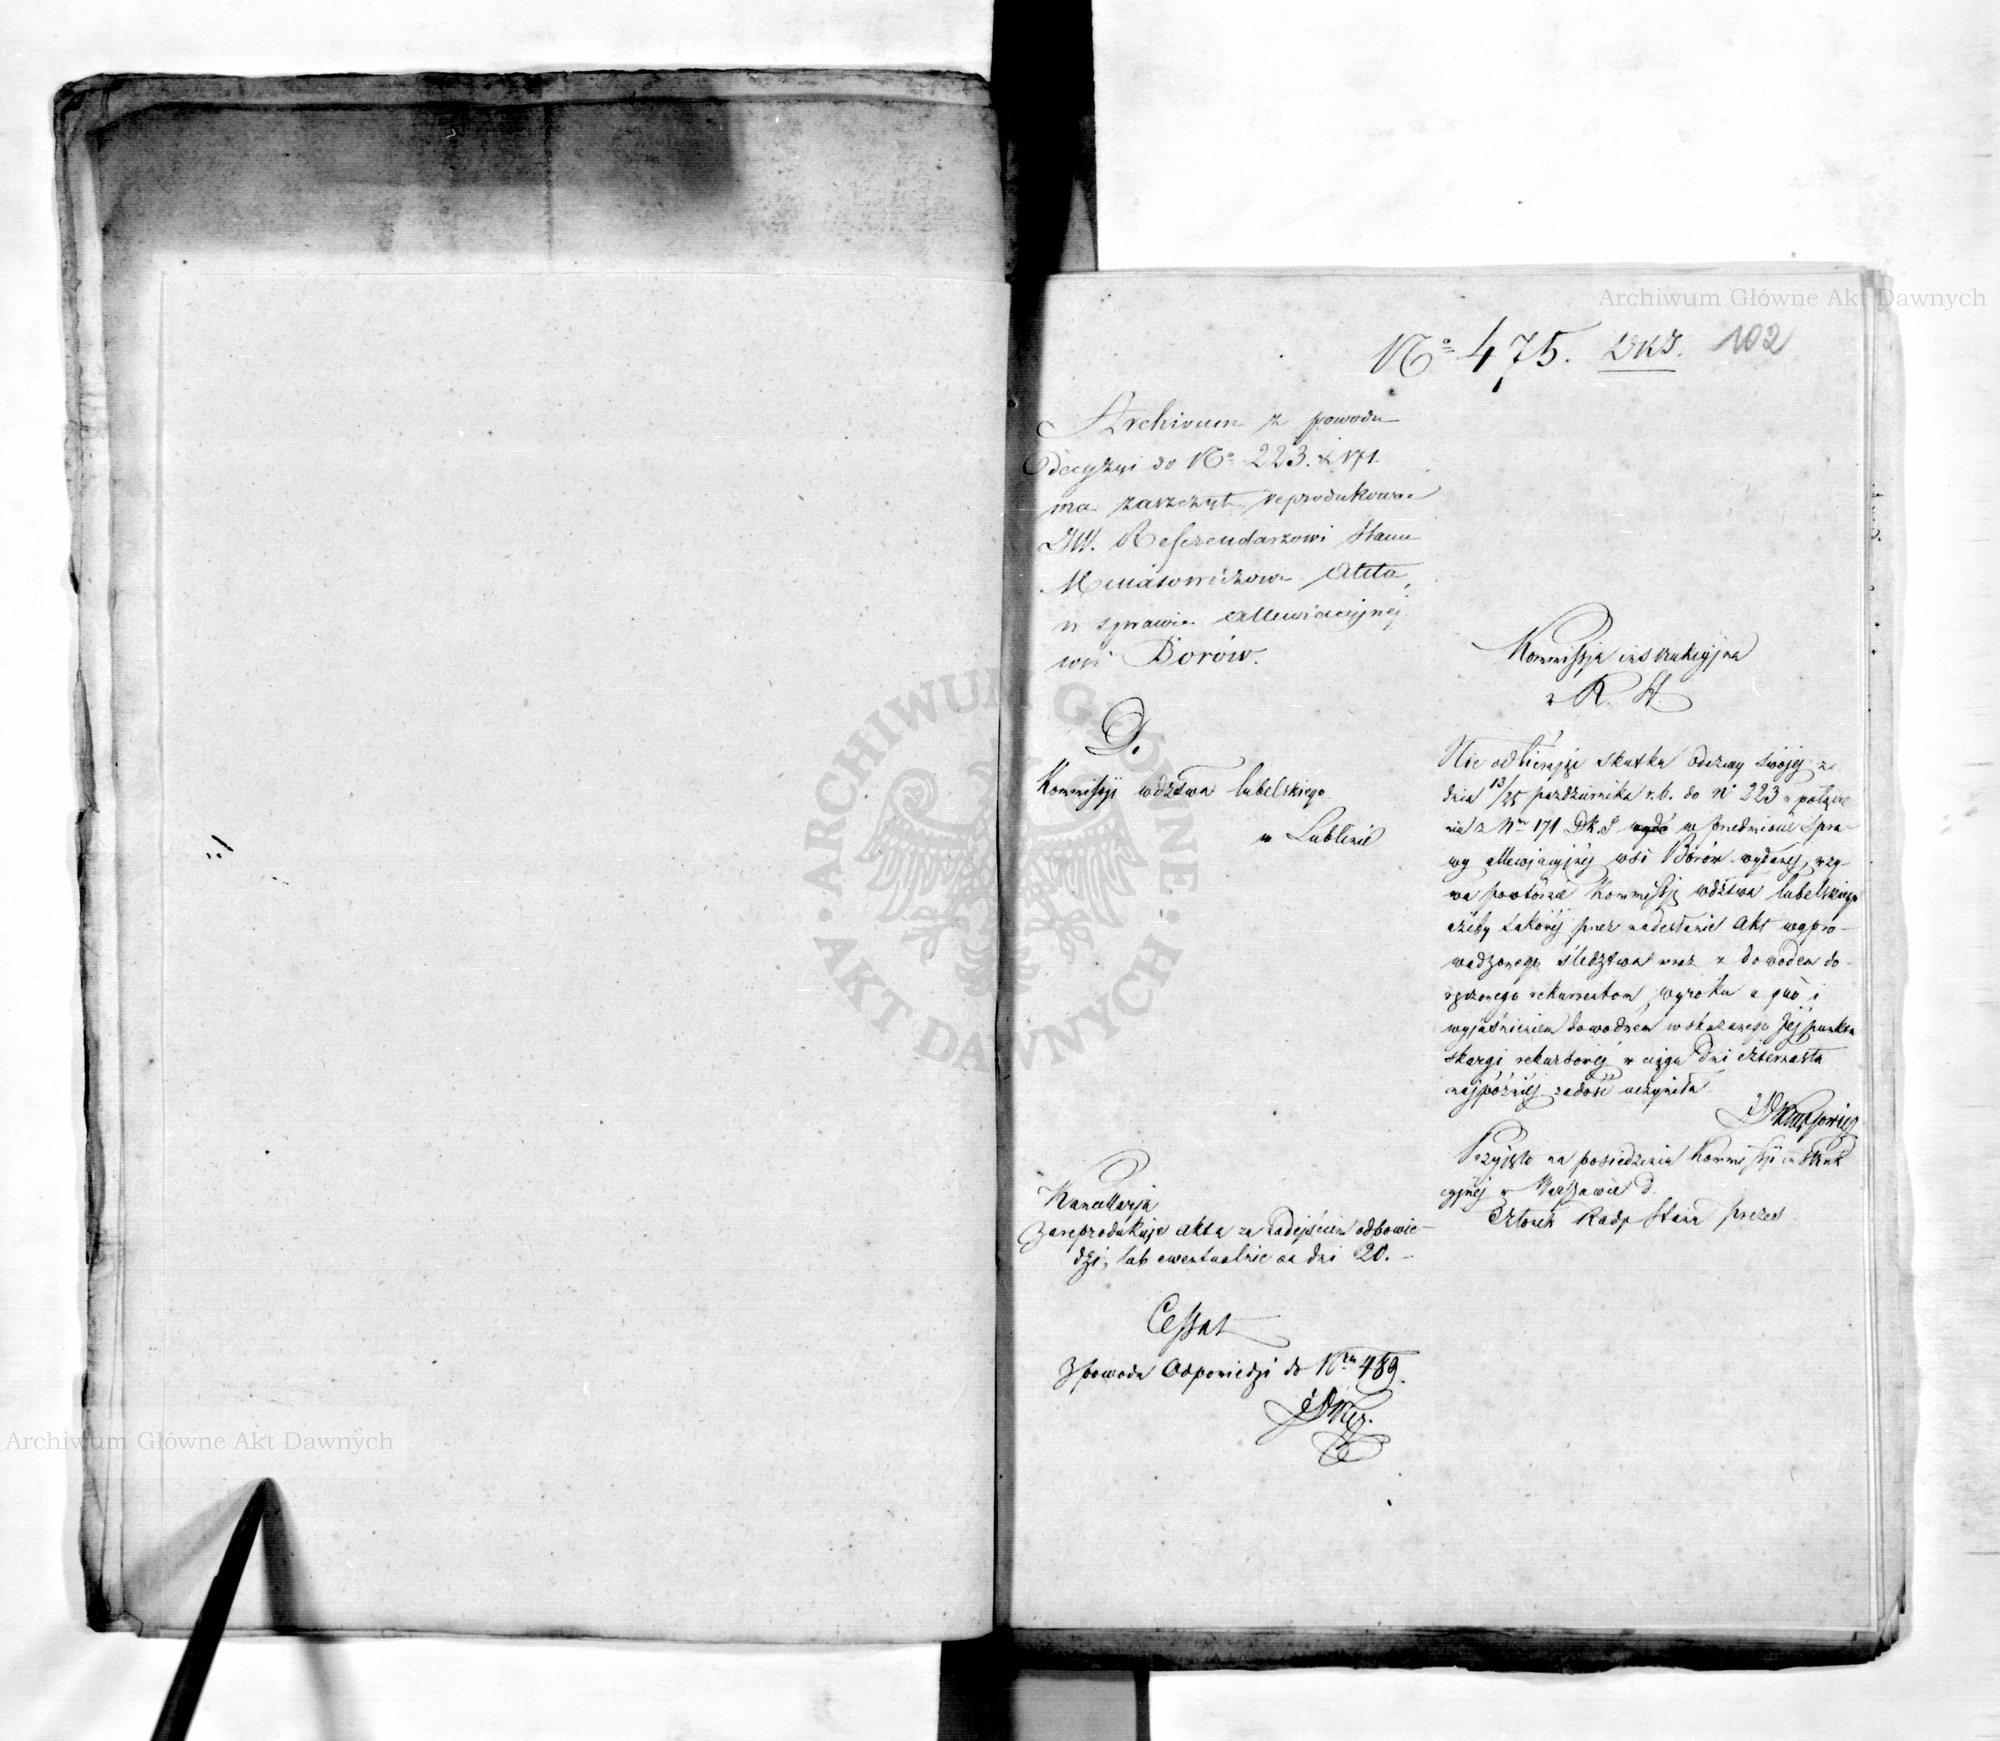 Archiwum Główne Akt Dawnych
No 475. DKJ. 102
Archivum z powodu
Decyzyi do No 223. & 171.
ma zaszczyt reprodukować
JW. Referendarzowi Stanu
Akta
w sprawie allewiacyjnej
wsi Borów.
D.
Kommissyi wdztwa lubelskiego
w Lublinie
Kommissja instrukcyjna
z R. St.
Nie odbierając skutku odezwy swojej z
dnia 13/25 pazdziernika r. b. do No 223 w połącze
niu z Nrem 171 DK.J w przedmiocie spra-
wy allewjacyjnej wsi Borów wydanej, wzy-
wa powtórnie Kommissję wdztwa lubelskiego
ażeby takowej przez nadesłanie akt wypro-
wadzonego śledztwa wraz z dowodem do-
ręczonego rekurrentom wyroku a quo i
wyjaśnieniem dowodnem wskazanego Jej punktu
skargi rekursowej w ciągu dni czternastu
najpóźniej zadość uczyniła.
Przyjęto na posiedzeniu Kommissyi instruk
cyjnej w Warszawie d.
Członek Rady Stanu prezes
Kancellarja
Zareprodukuje akta za nadejściem odpowie-
dzi, lub ewentualnie za dni 20. -
Cessat
Z powodu Odpowiedzi do Nru 489.
ARCHIWUM GŁÓWNE
AKT DAWNYCH
Archiwum Główne Akt Dawnych